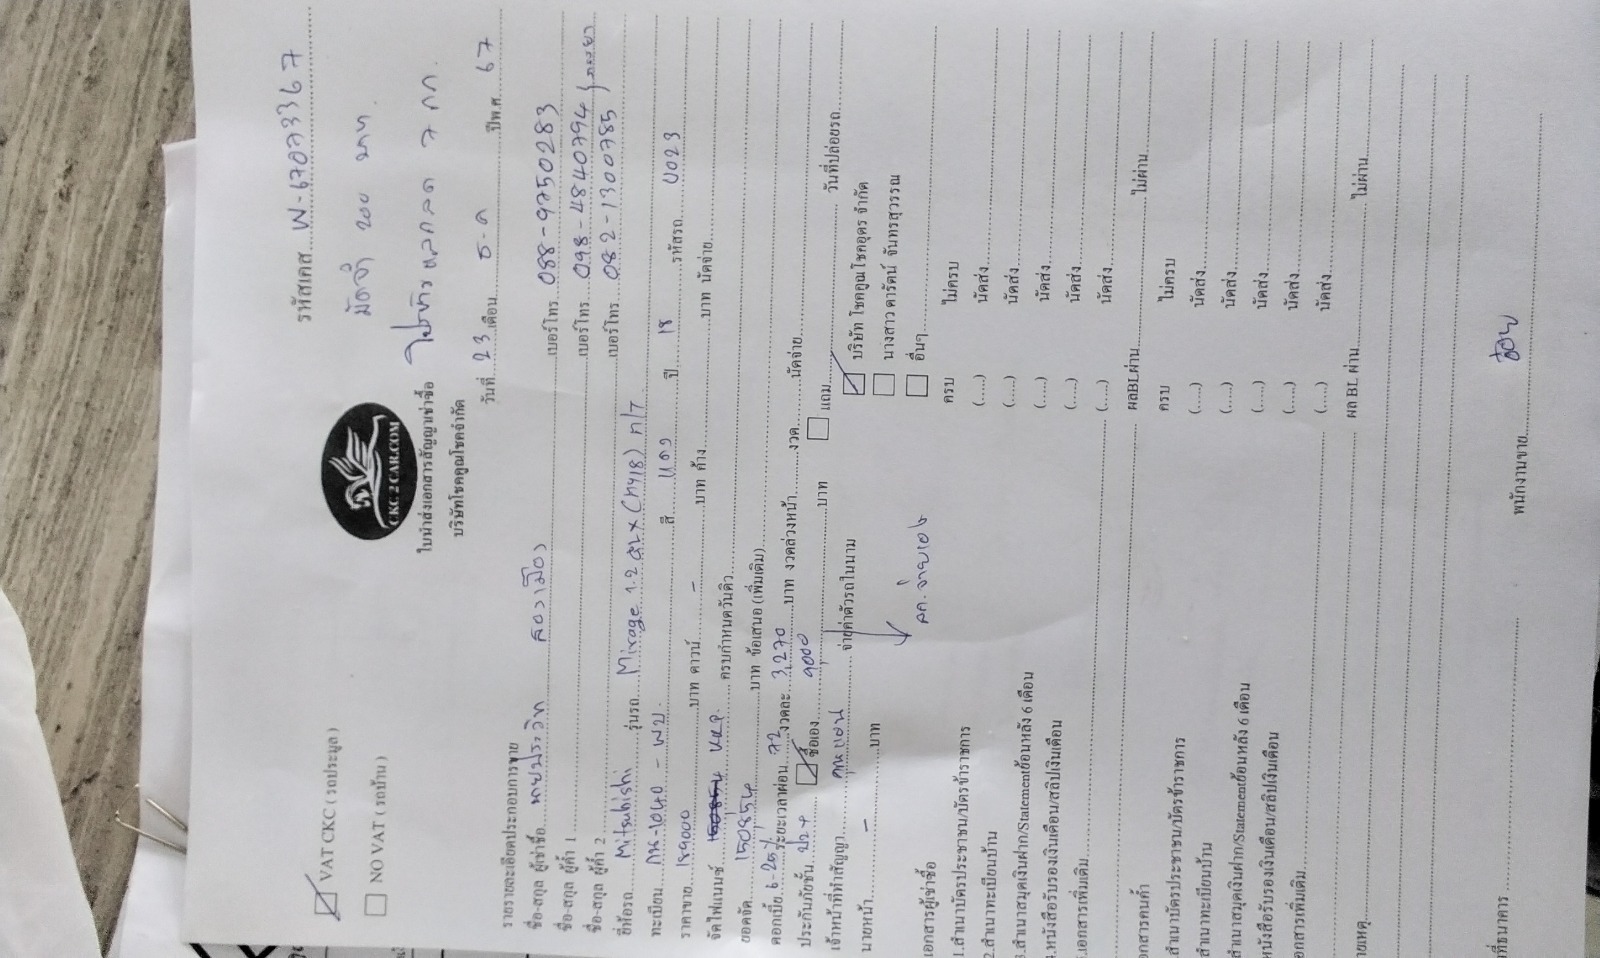 รหัสเคส W-67073367
VAT CKC ( รถประมูล )
มัดจำ 200 บาท
NO VAT ( รถบ้าน )
CKC 2 CAR.COM
ใบนำส่งเอกสารสัญญาเช่าซื้อ
7 กก.
บริษัทโชคคูณโชคจำกัด
วันที่ 23 เดือน ธ.ค ปีพ.ศ 67
รายรายละเอียดประกอบการขาย
ชื่อ-สกุล ผู้เช่าซื้อ นายประวิท เบอร์โทร 088-9750283
ชื่อ-สกุล ผู้ค้ำ 1 เบอร์โทร 098-4840794
ชื่อ-สกุล ผู้ค้ำ 2 เบอร์โทร 082-1300785
ยี่ห้อรถ Mitsubishi รุ่นรถ Mirage 1.2
ทะเบียน กน-1040 - พบ. สี แดง ปี 18 รหัสรถ U023
ราคาขาย 189000 บาท ดาวน์ - บาท ค้าง บาท นัดจ่าย
จัดไฟแนนซ์ KKP. ครบกำหนดวันคิว
ยอดจัด 150854 บาท ข้อเสนอ (เพิ่มเติม)
ดอกเบี้ย 6.25% ระยะเวลาผ่อน 72 งวดละ 3,270 บาท งวดล่วงหน้า งวด นัดจ่าย
ประกันภัยชั้น ป2+ ซื้อเอง 9000 บาท แถม วันที่ปล่อยรถ
เจ้าหน้าที่ทำสัญญา จ่ายค่าตัวรถในนาม บริษัท โชคคูณโชคอุดร จำกัด
นายหน้า - บาท นางสาวดารัตน์ จันทรสุวรรณ
อื่นๆ
ลค.จ่ายเอง
เอกสารผู้เช่าซื้อ ครบ ไม่ครบ
1.สำเนาบัตรประชาชน/บัตรข้าราชการ (.....) นัดส่ง
2.สำเนาทะเบียนบ้าน (.....) นัดส่ง
3.สำเนาสมุดเงินฝาก/Statementย้อนหลัง 6 เดือน (.....) นัดส่ง
4.หนังสือรับรองเงินเดือน/สลิปเงินเดือน (.....) นัดส่ง
เอกสารเพิ่มเติม (.....) นัดส่ง
ผลBLผ่าน ไม่ผ่าน
อกสารคนค้ำ ครบ ไม่ครบ
สำเนาบัตรประชาชน/บัตรข้าราชการ (.....) นัดส่ง
สำเนาทะเบียนบ้าน (.....) นัดส่ง
สำเนาสมุดเงินฝาก/Statementย้อนหลัง 6 เดือน (.....) นัดส่ง
หนังสือรับรองเงินเดือน/สลิปเงินเดือน (.....) นัดส่ง
อกสารเพิ่มเติม (.....) นัดส่ง
ผล BL ผ่าน ไม่ผ่าน
ายเหตุ
ที่ธนาคาร พนักงานขาย